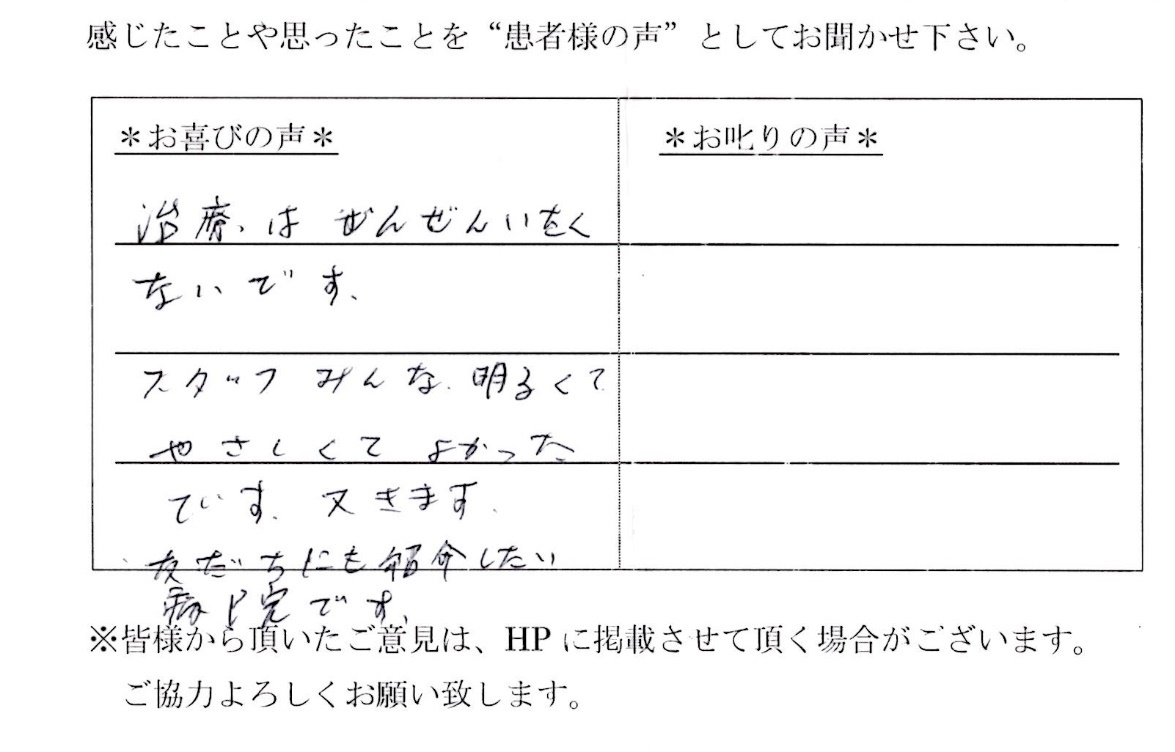 感じたことや思ったことを“患者様の声”としてお聞かせ下さい。
＊お喜びの声＊
治療、は ぜんぜんいたく
ないです、
スタッフ みんな、明るくて
やさしくて よかった
です、又きます、
友だちにも紹介したい
病院です、
＊お叱りの声＊
※皆様から頂いたご意見は、HPに掲載させて頂く場合がございます。
ご協力よろしくお願い致します。